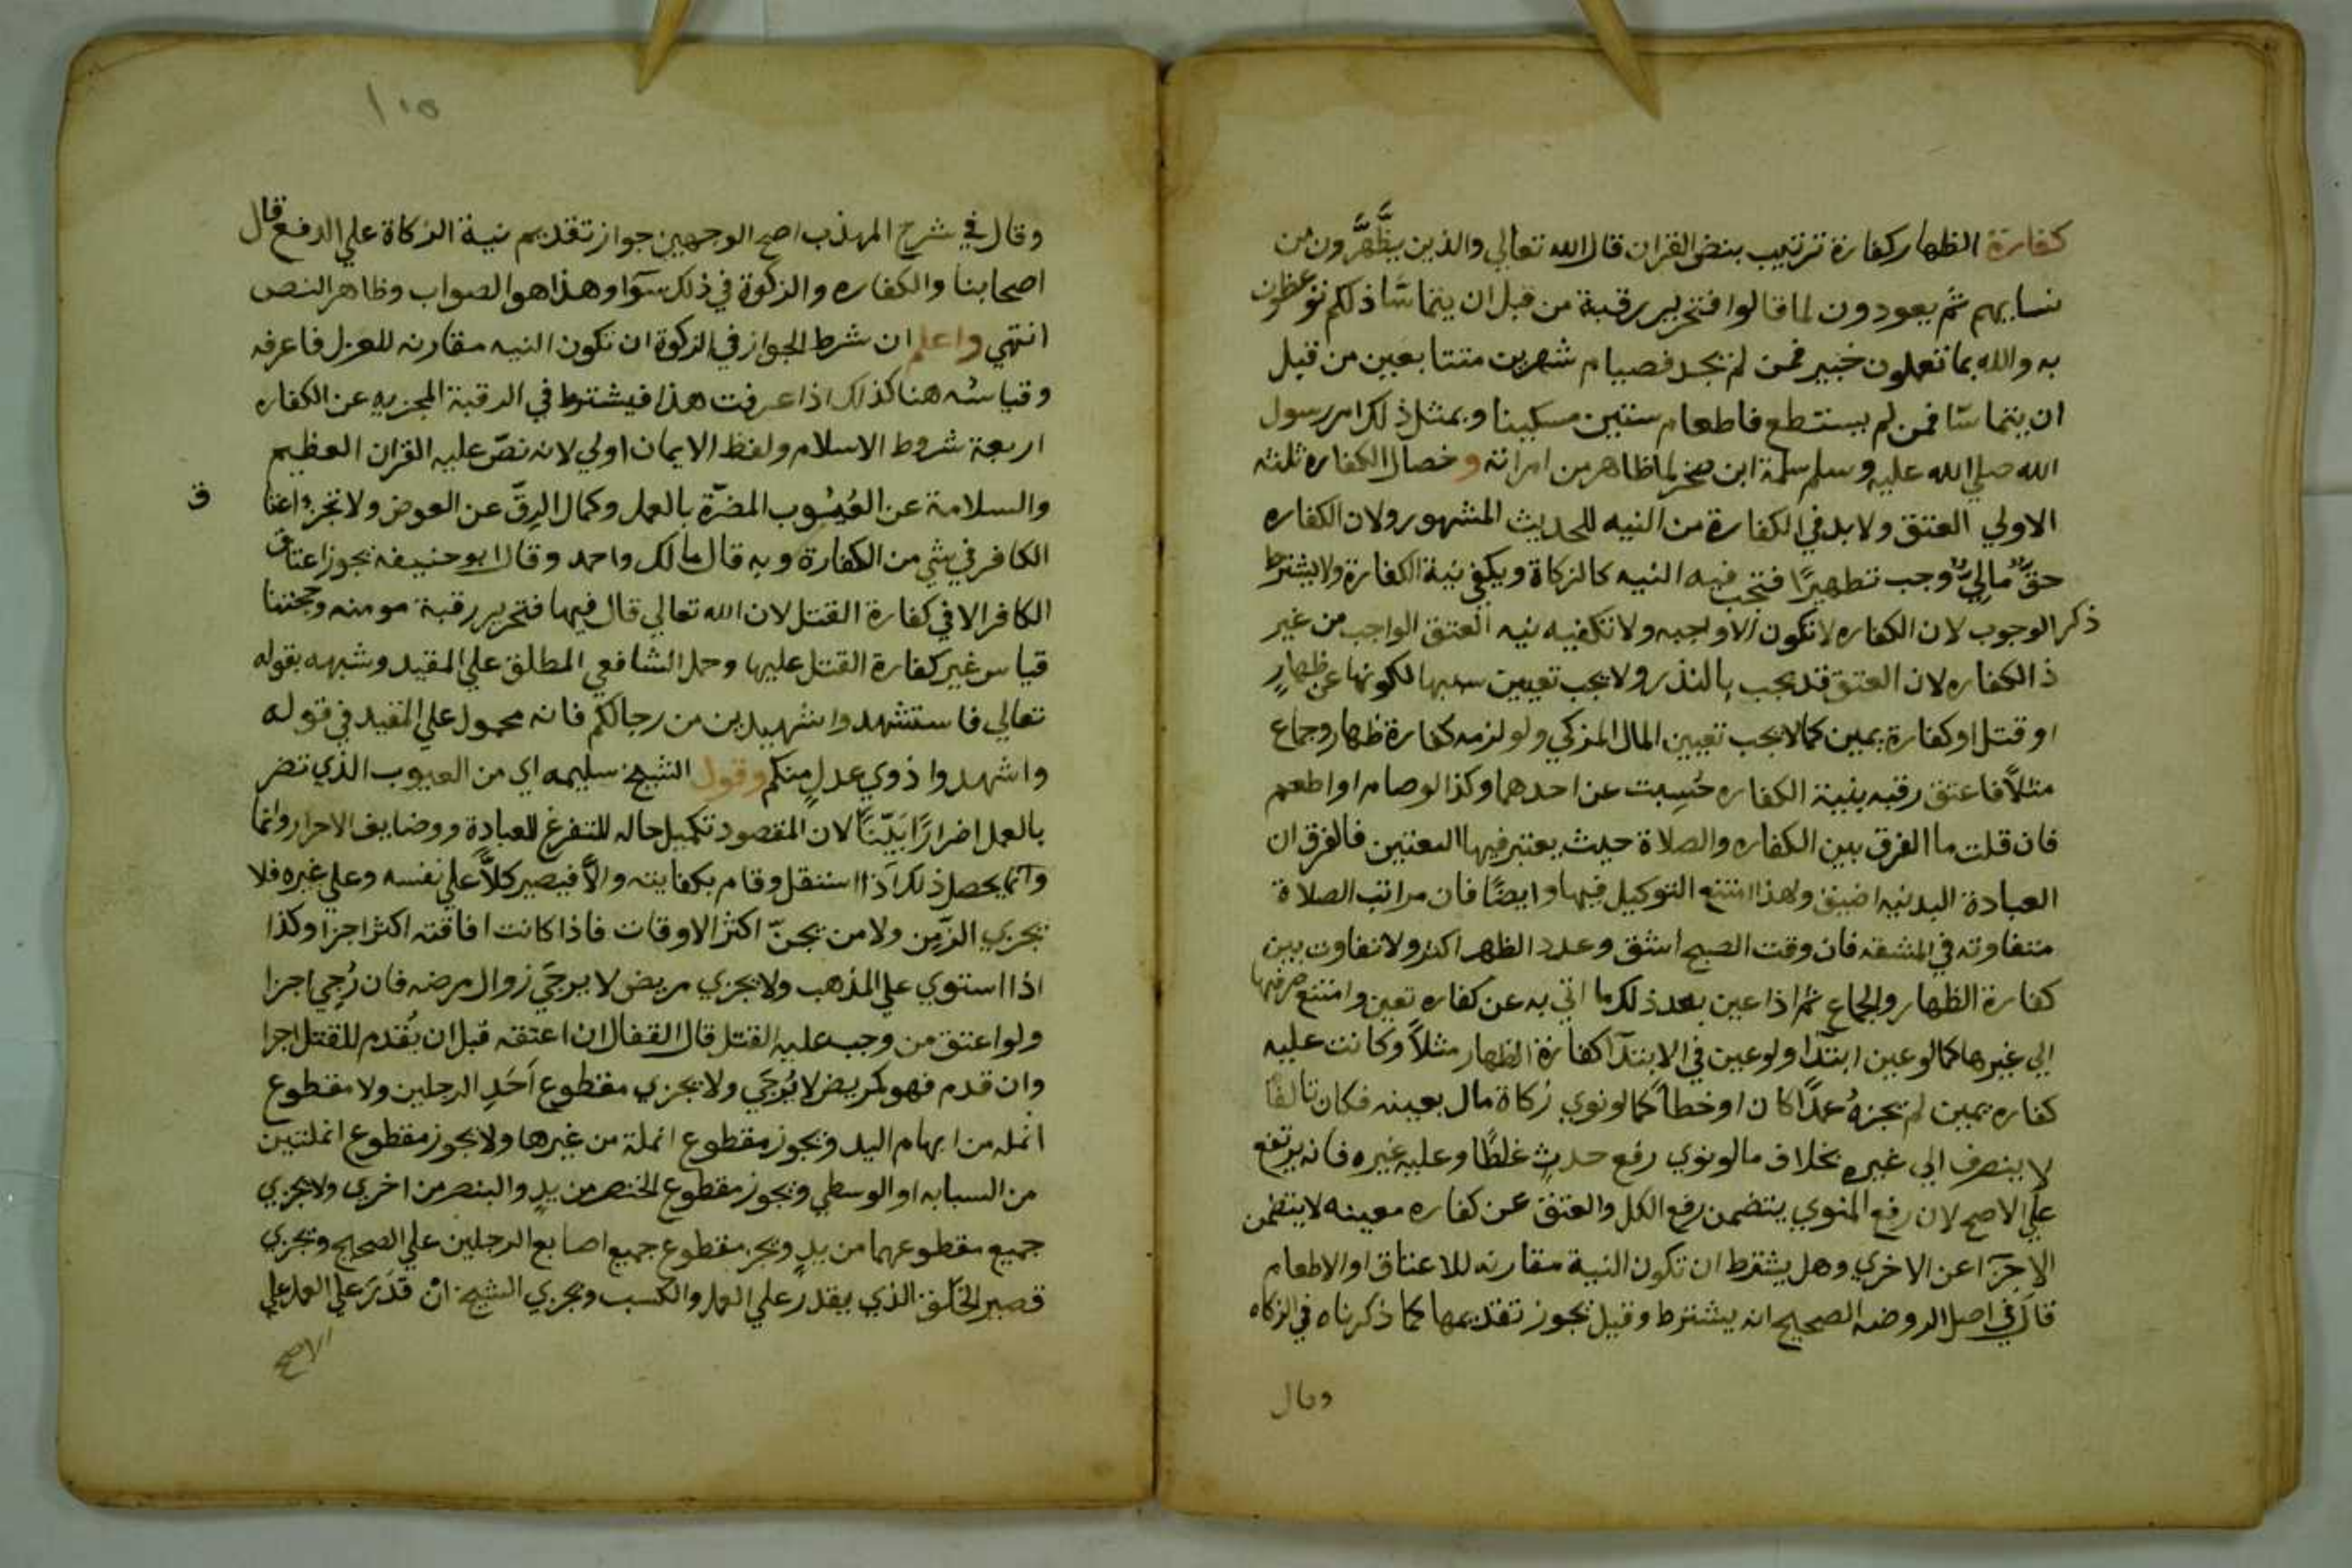 كفارة الظهار كفارة ترتيب بنص القران قال الله تعالي والذين يظَّهَّرون من
نسايهم ثم يعودون لما قالوا فتحرير رقبة من قبل ان يتماسّا ذلكم توعظون
به والله بما تعملون خبير فمن لم يجد فصيام شهرين متتابعين من قبل
ان يتماسّا فمن لم يستطع فاطعام ستين مسكينا وبمثل ذلك امر رسول
الله صلي الله عليه وسلم سلمة ابن صخر لما ظاهر من امراته وخصال الكفاره ثلثه
الاولي العتق ولا بد في الكفارة من النيه للحديث المشهور ولان الكفاره
حقٌّ ماليٌّ وجب تطهيرًا فتجب فيه النيه كالزكاة ويكفي نية الكفارة ولا يشترط
ذكر الوجوب لان الكفاره لا تكون الا واجبه ولا تكفيه نيه العتق الواجب من غير
ذ الكفاره لان العتق قد يجب بالنذر ولا يجب تعيين سببها لكونها عن ظهارٍ
او قتل او كفارة يمين كما لا يجب تعيين المال المزكي ولو لزمه كفارة ظهار وجماع
مثلاً فاعتق رقبه بنية الكفاره حُسِبت عن احدهما وكذا لو صام او اطعم
فان قلت ما الفرق بين الكفاره والصلاة حيث يعتبر فيها التعيين فالفرق ان
العبادة البدنيه اضيق ولهذا امتنع التوكيل فيها وايضًا فان مراتب الصلاة
متفاوته في المشقه فان وقت الصبح اشق وعدد الظهر اكثر ولا تفاوت بين
كفارة الظهار والجماع ثم اذا عين بعد ذلك ما اتي به عن كفاره تعين وامتنع صرفها
الي غيرها كما لو عين ابتدًا ولو عين في الابتدآ كفارة الظهار مثلاً وكانت عليه
كفاره يمين لم يجزهُ عمدًا كان او خطاً كما لو نوي زكاة مال بعينه فكان تالفًا
لا ينصرف الي غيره بخلاف ما لو نوي رفع حدثٍ غلطًا وعليه غيره فانه يرتفع
علي الاصح لان رفع المنوي يتضمن رفع الكل والعتق عن كفاره معينه لا يتضمن
الاجزآ عن الاخري وهل يشترط ان تكون النية مقارنه للاعتاق او الاطعام
قال في اصل الروضه الصحيح انه يشترط وقيل يجوز تقديمها كما ذكرناه في الزكاه
وقال
١٠٥
وقال في شرح المهذب اصح الوجهين جواز تقديم نية الزكاة علي الدفع قال
اصحابنا والكفاره والزكوة في ذلك سوآ وهذا هو الصواب وظاهر النص
انتهي واعلم ان شرط الجواز في الزكوة ان تكون النيه مقارنه للعزل فاعرفه
وقياسُه هنا كذلك اذا عرفت هذا فيشترط في الرقبة المجزيه عن الكفاره
اربعة شروط الاسلام ولفظ الايمان اولي لانه نصّ عليه القران العظيم
والسلامة عن العُيُوب المضرّة بالعمل وكمال الرِقّ عن العوض ولا تجزي اعتا
ق
الكافر في شي من الكفارة وبه قال مالك واحمد وقال ابو حنيفه يجوز اعتاق
الكافر الا في كفارة القتل لان الله تعالي قال فيها فتحرير رقبة مومنه وحجتنا
قياس غير كفارة القتل عليها وحمل الشافعي المطلق علي المقيد وشبهه بقوله
تعالي فاستشهدوا شهيدين من رجالكم فانه محمول علي المقيد في قوله
واشهدوا ذوي عدلٍ منكم وقول الشيخ سليمه اي من العيوب الذي تضر
بالعمل اضرارًا بَيّنًا لان المقصود تكميل حاله للتفرغ للعبادة ووضايف الاحرار وانما
وانما يحصل ذلك اذا استقل وقام بكفايته والاَّ فيصير كلاًّ علي نفسه وعلي غيره فلا
يجزي الزَّمِن ولا من يجنّ اكثر الاوقات فاذا كانت افاقته اكثر اجزا وكذا
اذا استوي علي المذهب ولا يجزي مريض لا يرجَي زوال مرضه فان رُجِي اجزا
ولو اعتق من وجب عليه القتل قال القفال ان اعتقه قبل ان يُقدم للقتل اجزا
وان قدم فهو كمريض لا يُرجَي ولا يجزي مقطوع اَحَدِ الرجلين ولا مقطوع
انمله من ابهام اليد ويجوز مقطوع انملة من غيرها ولا يجوز مقطوع انملتين
من السبابه او الوسطي ويجوز مقطوع الخنصر من يدٍ والبنصر من اخري ولا يجزي
جميع مقطوعهما من يدٍ ويجز مقطوع جميع اصابع الرجلين علي الصحيح ويجزي
قصير الخَلق الذي يقدر علي العمل والكسب ويجزي الشيخ انْ قدَرَ علي العمل علي
الاصح